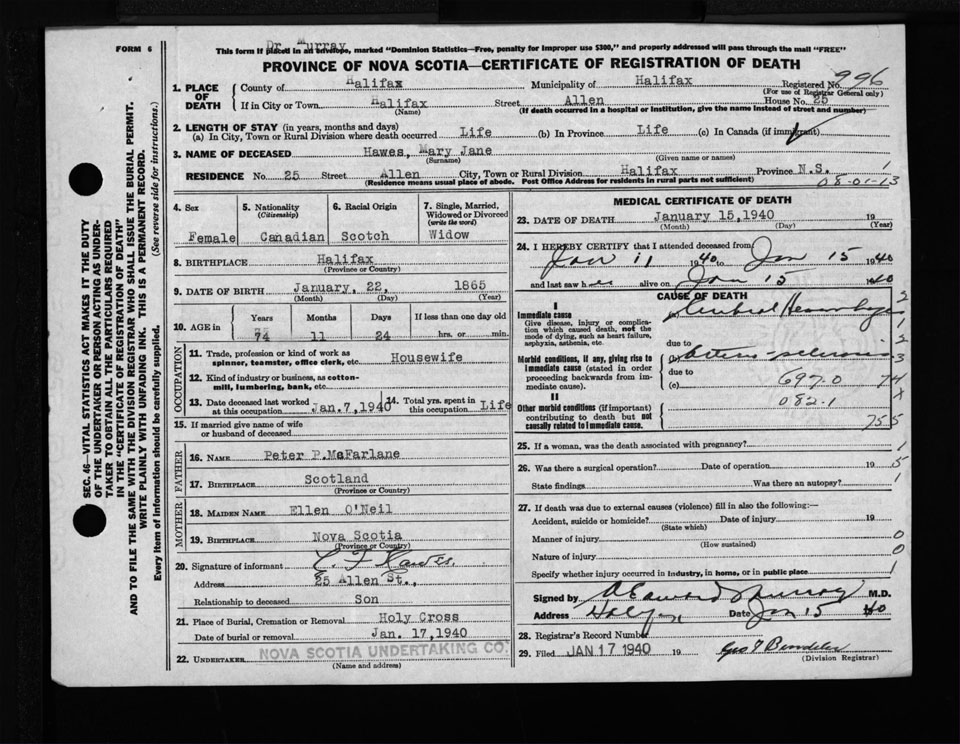 FORM 6
Dr Murray
This form if placed in an envelope, marked "Dominion Statistics—Free, penalty for improper use $300," and properly addressed will pass through the mail "FREE"
PROVINCE OF NOVA SCOTIA—CERTIFICATE OF REGISTRATION OF DEATH
1. PLACE OF DEATH County of Halifax Municipality of Halifax Registered No. 996
(For use of Registrar General only)
If in City or Town Halifax Street Allen House No. 25
(Name) (If death occurred in a hospital or institution, give the name instead of street and number)
2. LENGTH OF STAY (in years, months and days)
(a) In City, Town or Rural Division where death occurred Life (b) In Province Life (c) In Canada (if immigrant)
3. NAME OF DECEASED Hawes, Mary Jane
(Surname) (Given name or names)
RESIDENCE No. 25 Street Allen City, Town or Rural Division Halifax Province N.S. 1
(Residence means usual place of abode. Post Office Address for residents in rural parts not sufficient) 08-01-13
4. Sex 5. Nationality (Citizenship) 6. Racial Origin 7. Single, Married, Widowed or Divorced (write the word)
Female Canadian Scotch Widow
8. BIRTHPLACE Halifax
(Province or Country)
9. DATE OF BIRTH January, 22, 1865
(Month) (Day) (Year)
10. AGE in Years Months Days If less than one day old
74 11 24 hrs. or min.
OCCUPATION
11. Trade, profession or kind of work as spinner, teamster, office clerk, etc. Housewife
12. Kind of industry or business, as cotton-mill, lumbering, bank, etc.
13. Date deceased last worked at this occupation Jan.7,1940 14. Total yrs. spent in this occupation Life
15. If married give name of wife or husband of deceased
FATHER
16. NAME Peter P.McFarlane
17. BIRTHPLACE Scotland
(Province or Country)
MOTHER
18. MAIDEN NAME Ellen O'Neil
19. BIRTHPLACE Nova Scotia
(Province or Country)
20. Signature of informant Hawes.
Address 25 Allen St.,
Relationship to deceased Son
21. Place of Burial, Cremation or Removal Holy Cross
Date of burial or removal Jan. 17,1940
22. UNDERTAKER NOVA SCOTIA UNDERTAKING CO.
(Name and address)
MEDICAL CERTIFICATE OF DEATH
23. DATE OF DEATH January 15,1940 19
(Month) (Day) (Year)
24. I HEREBY CERTIFY that I attended deceased from
Jan 11 1940 to Jan 15 1940
and last saw her alive on Jan 15 1940
CAUSE OF DEATH
I
Immediate cause
Give disease, injury or complication which caused death, not the mode of dying, such as heart failure, asphyxia, asthenia, etc.
Cerebral Hemorrhage 2
1
due to 2
Morbid conditions, if any, giving rise to immediate cause (stated in order proceeding backwards from immediate cause).
Arterio-sclerosis 3
due to
(c) 697.0 74
II
082.1 x
Other morbid conditions (if important) contributing to death but not causally related to immediate cause.
755
25. If a woman, was the death associated with pregnancy? 1
26. Was there a surgical operation? Date of operation 19 5
State findings Was there an autopsy? 1
27. If death was due to external causes (violence) fill in also the following:—
Accident, suicide or homicide? Date of injury 19
(State which)
Manner of injury 0
(How sustained)
Nature of injury 0
Specify whether injury occurred in industry, in home, or in public place 1
Signed by Edward Murray M.D.
Address Halifax Date Jan 15 40
28. Registrar's Record Number
29. Filed JAN 17 1940 19
(Division Registrar)
SEC. 46—VITAL STATISTICS ACT MAKES IT THE DUTY
OF THE UNDERTAKER OR PERSON ACTING AS UNDER-
TAKER TO OBTAIN ALL THE PARTICULARS REQUIRED
IN THE "CERTIFICATE OF REGISTRATION OF DEATH"
AND TO FILE THE SAME WITH THE DIVISION REGISTRAR WHO SHALL ISSUE THE BURIAL PERMIT.
WRITE PLAINLY WITH UNFADING INK. THIS IS A PERMANENT RECORD.
Every item of information should be carefully supplied. (See reverse side for instructions.)